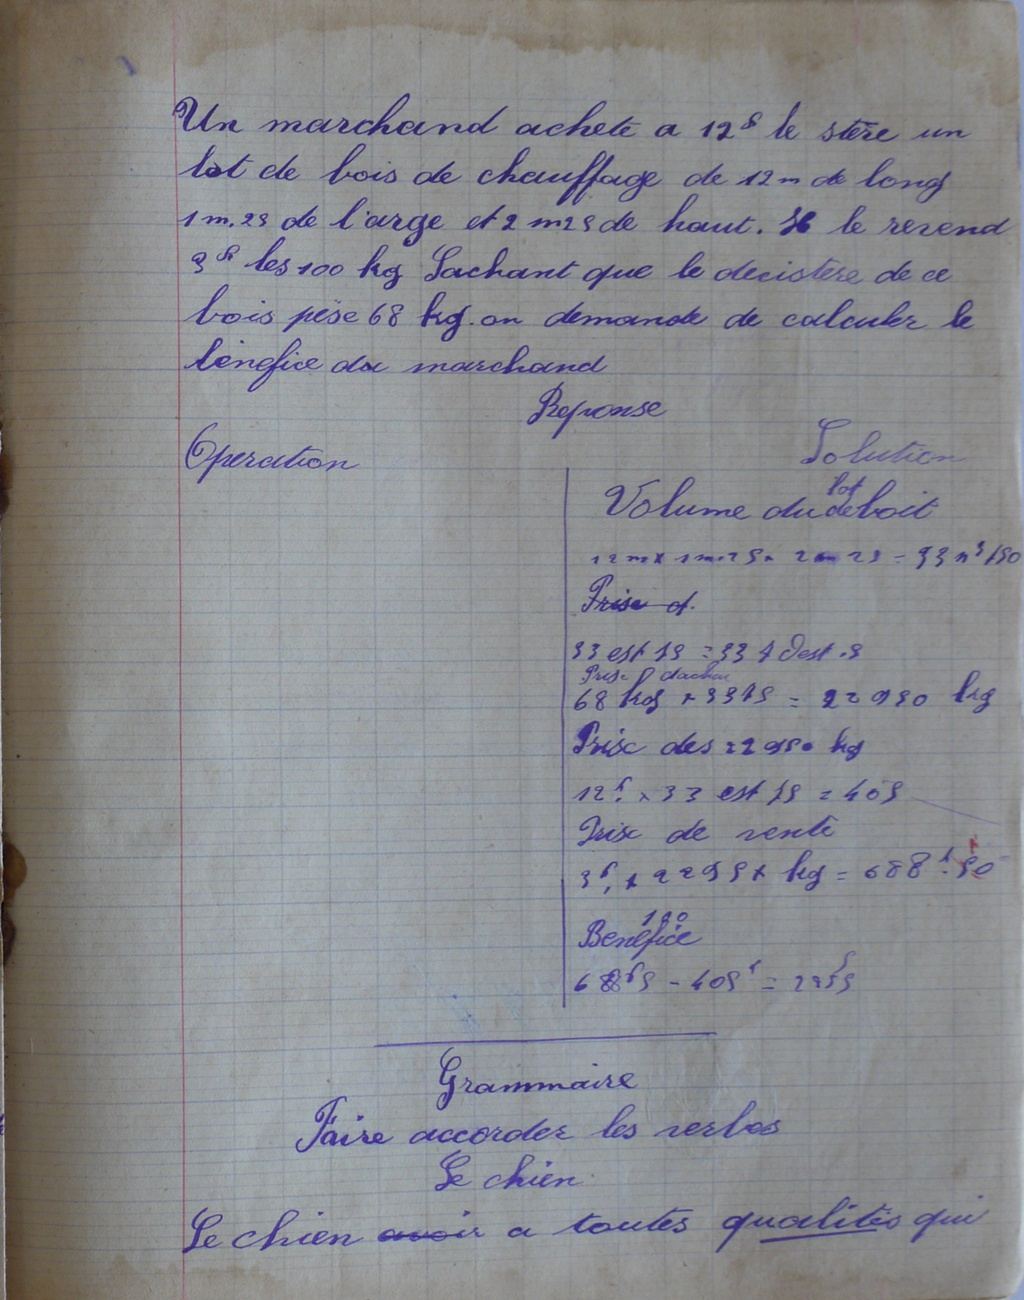 Un marchand achete a 12f le stère un
lot de bois de chauffage de 12m de long
1m.25 de l'arge et 2m25 de haut. Il le revend
3f les 100 kg Sachant que le decistère de ce
bois pèse 68 kg. on demande de calculer le
bénéfice du marchand
Reponse
Operation
Solution
Volume du lot de boit
12m x 1m.25 x 2m 25 = 33m3 750
Prise d
33 est 75 = 337 dest.5
Prise d'achat
68 kg x 3375 = 22950 kg
Prise des 22950 kg
12f. x 33 est 75 = 405
Prise de vente
3f. x 22950 kg = 688f.50
100
Benéfice
688f5 - 405f = 283f5
Grammaire
Faire accorder les verbes
Le chien
Le chien avoir a toutes qualités qui